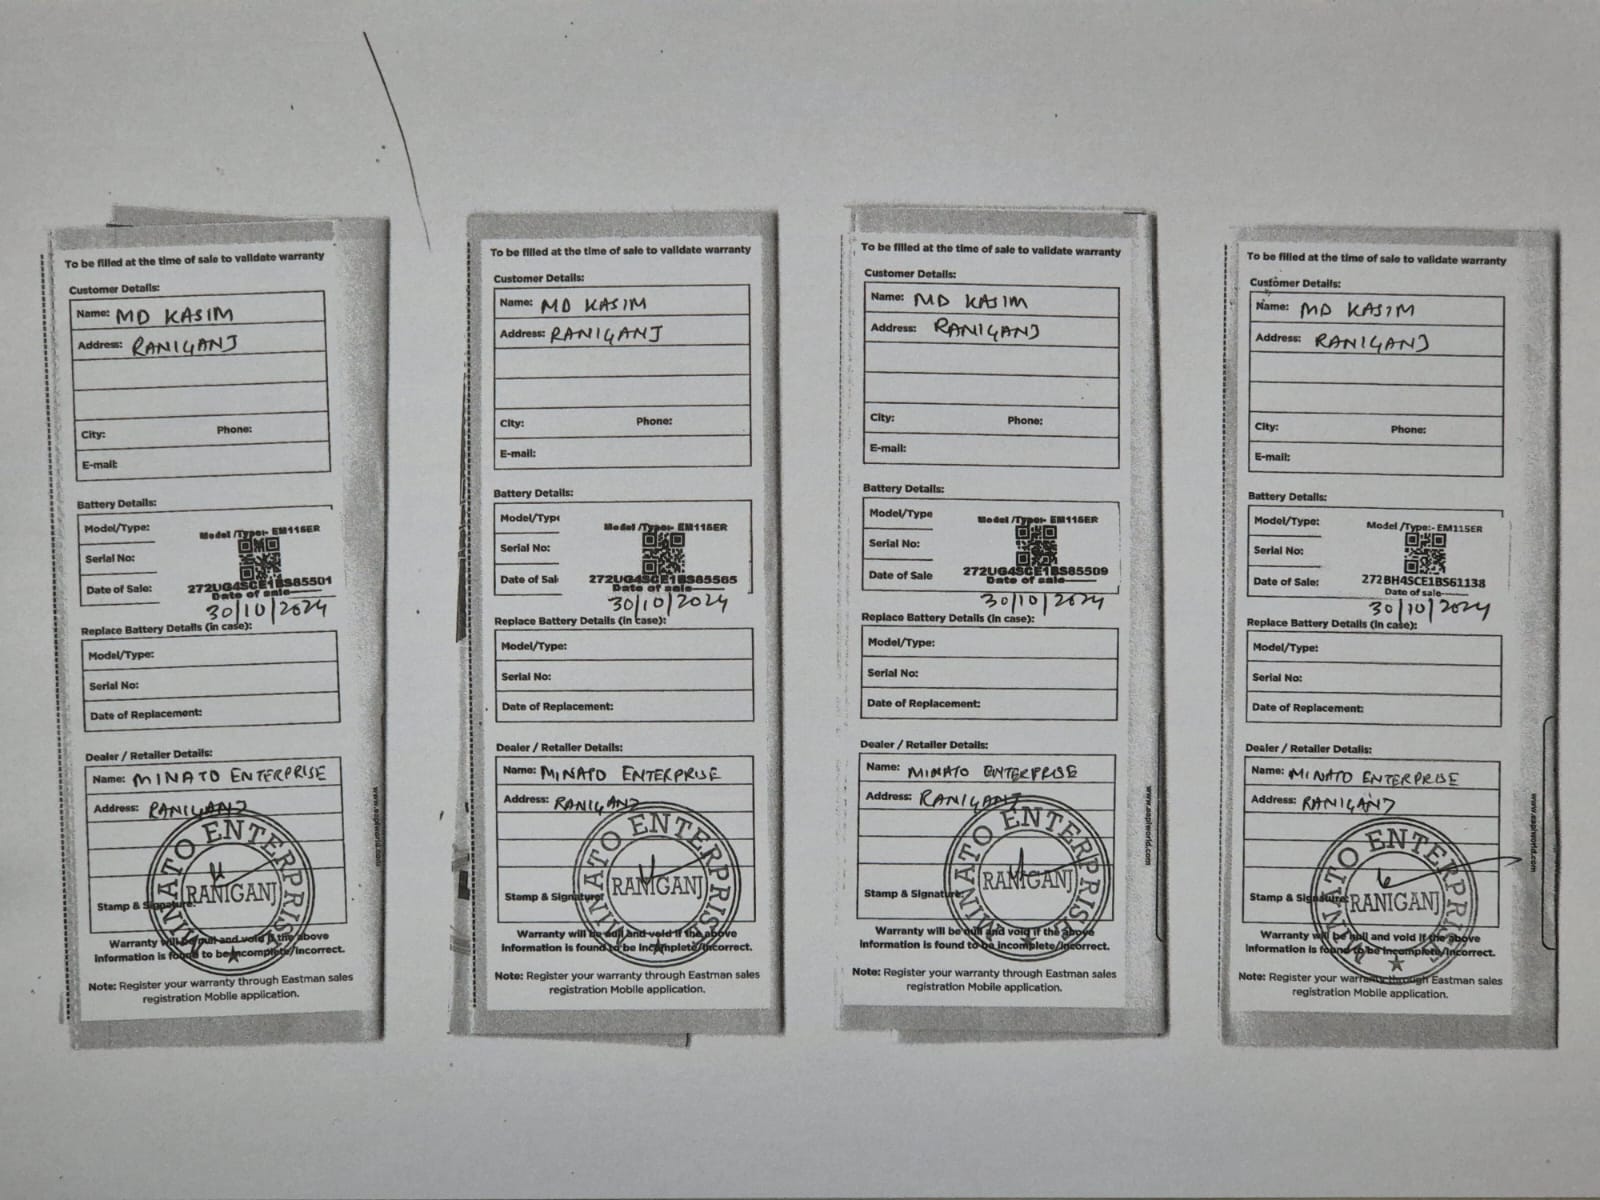 To be filled at the time of sale to validate warranty
Customer Details:
Name: MD KASIM
Address: RANIGANJ
City: Phone:
E-mail:
Battery Details:
Model/Type:
Model /Type:- EM115ER
Serial No:
272UG4SCE1BS85501
Date of Sale:
Date of sale
30/10/2024
Replace Battery Details (in case):
Model/Type:
Serial No:
Date of Replacement:
Dealer / Retailer Details:
Name: MINATO ENTERPRISE
Address: RANIGANJ
MINATO ENTERPRISE
RANIGANJ
Stamp & Signature:
Warranty will be null and void if the above
information is found to be incomplete/incorrect.
Note: Register your warranty through Eastman sales
registration Mobile application.
www.eaplworld.com
To be filled at the time of sale to validate warranty
Customer Details:
Name: MD KASIM
Address: RANIGANJ
City: Phone:
E-mail:
Battery Details:
Model/Type
Model /Type:- EM115ER
Serial No:
272UG4SCE1BS85565
Date of Sal
Date of sale
30/10/2024
Replace Battery Details (in case):
Model/Type:
Serial No:
Date of Replacement:
Dealer / Retailer Details:
Name: MINATO ENTERPRISE
Address: RANIGANJ
MINATO ENTERPRISE
RANIGANJ
Stamp & Signature:
Warranty will be null and void if the above
information is found to be incomplete/incorrect.
Note: Register your warranty through Eastman sales
registration Mobile application.
To be filled at the time of sale to validate warranty
Customer Details:
Name: MD KASIM
Address: RANIGANJ
City: Phone:
E-mail:
Battery Details:
Model/Type
Model /Type:- EM115ER
Serial No:
272UG4SCE1BS85509
Date of Sale
Date of sale
30/10/2024
Replace Battery Details (in case):
Model/Type:
Serial No:
Date of Replacement:
Dealer / Retailer Details:
Name: MINATO ENTERPRISE
Address: RANIGANJ
MINATO ENTERPRISE
RANIGANJ
Stamp & Signature
Warranty will be null and void if the above
information is found to be incomplete/incorrect.
Note: Register your warranty through Eastman sales
registration Mobile application.
www.eaplworld.com
To be filled at the time of sale to validate warranty
Customer Details:
Name: MD KASIM
Address: RANIGANJ
City: Phone:
E-mail:
Battery Details:
Model/Type:
Model /Type:- EM115ER
Serial No:
272BH4SCE1BS61138
Date of Sale:
Date of sale
30/10/2024
Replace Battery Details (in case):
Model/Type:
Serial No:
Date of Replacement:
Dealer / Retailer Details:
Name: MINATO ENTERPRISE
Address: RANIGANJ
MINATO ENTERPRISE
RANIGANJ
Stamp & Signature:
Warranty will be null and void if the above
information is found to be incomplete/incorrect.
Note: Register your warranty through Eastman sales
registration Mobile application.
www.eaplworld.com